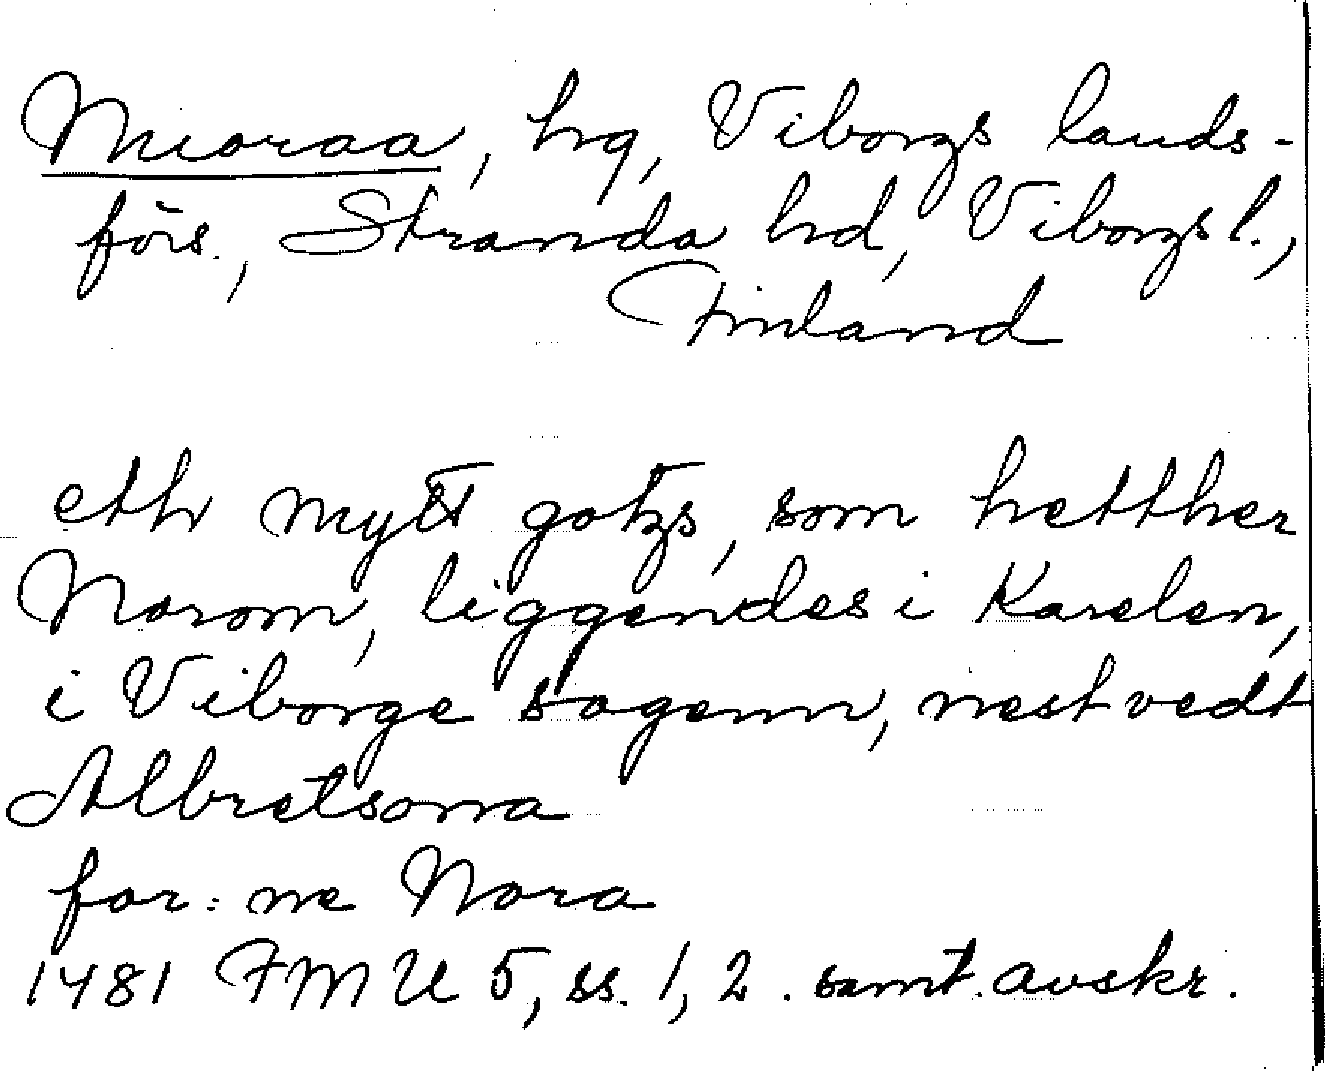 Nuoraa, hg, Viborgs lands-
förs., Stranda hd, Viborgs l.,
Finland
eth mytt gotzs, som hetther
Norom, liggendes i Karelen,
i Viborge sogenn, nest vedt
Albretsonna
for:ne Nora
1481 FMU 5, ss. 1, 2. samt. avskr.